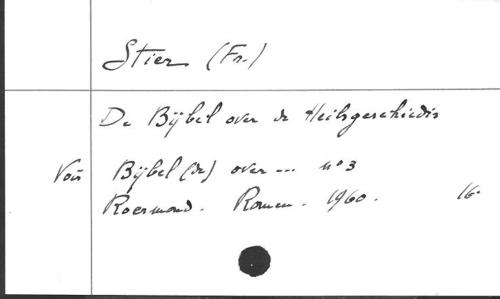 Stier (Fr.)
De Bijbel over de Heilsgeschiedis
Voir Bijbel (de) over... n° 3
Roermond. Romen. 1960. 16°